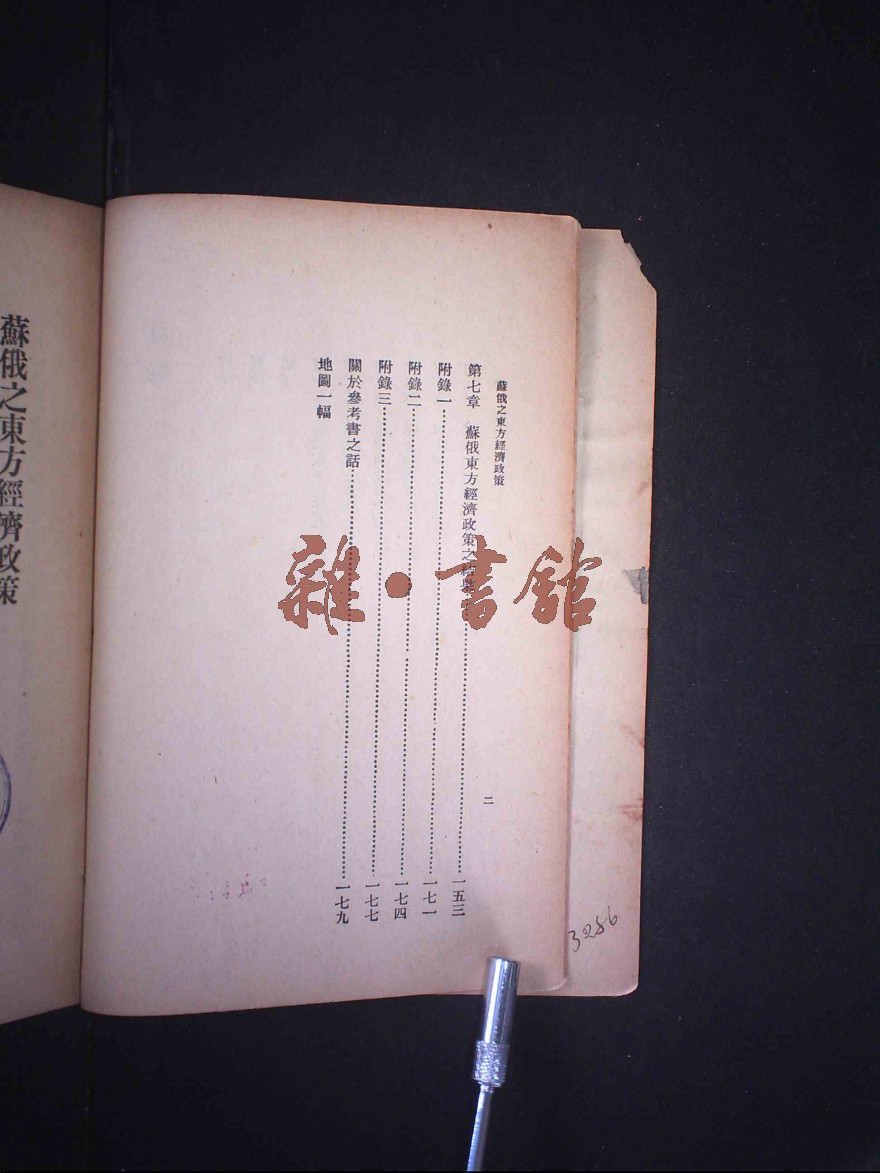 蘇俄之東方經濟政策
二
第七章　蘇俄東方經濟政策之……一五三
附錄一……一七一
附錄二……一七四
附錄三……一七七
關於參考書之話……一七九
地圖一幅
蘇俄之東方經濟政策
雜·書館
3256